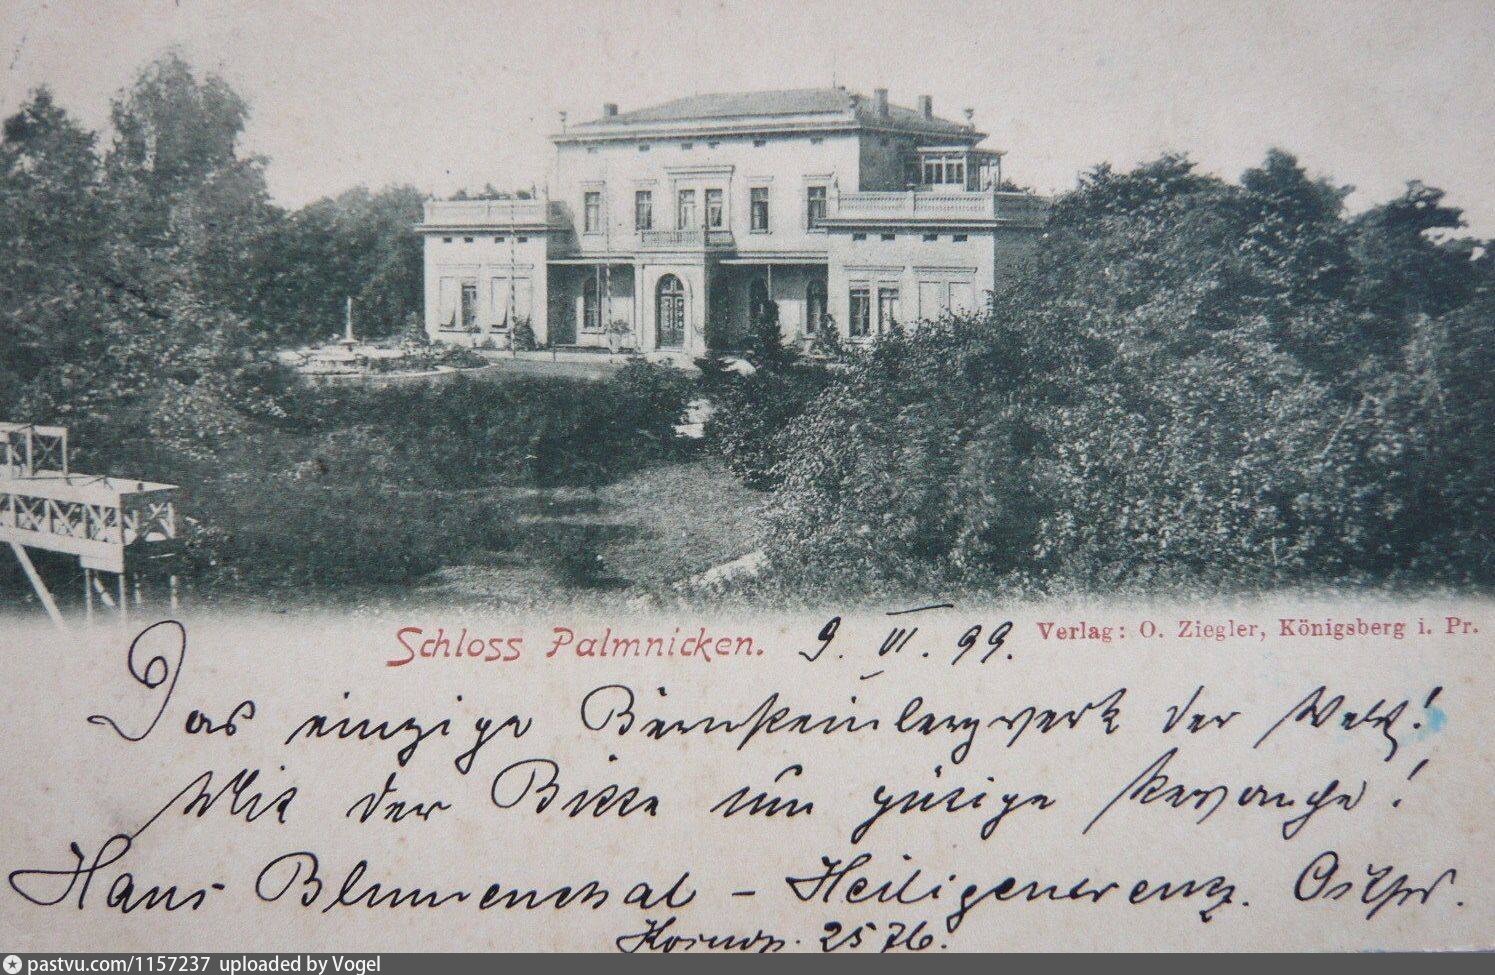 Schloss Palmnicken. 9. VI. 99.
Verlag: O. Ziegler, Königsberg i. Pr.
Das einzige Bernsteinbergwerk der Welt!
Mit der Bitte um gütige Revanche!
Hans Blumenthal - Heiligencreutz. Ostpr.
2576.
pastvu.com/1157237 uploaded by Vogel